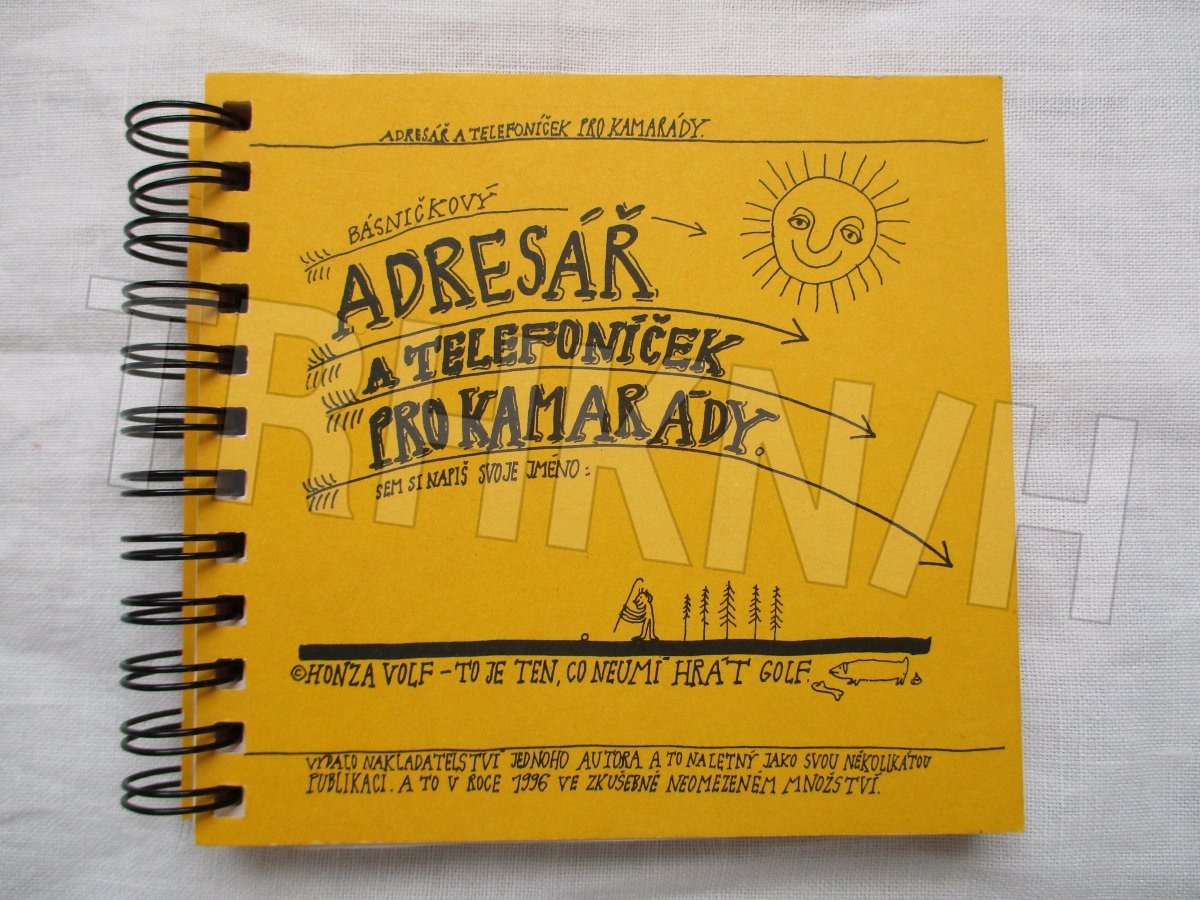 ADRESÁŘ A TELEFONÍČEK PRO KAMARÁDY.
BÁSNIČKOVÝ
ADRESÁŘ
A TELEFONÍČEK
PRO KAMARÁDY.
SEM SI NAPIŠ SVOJE JMÉNO:
©HONZA VOLF – TO JE TEN, CO NEUMÍ HRÁT GOLF.
VYDALO NAKLADATELSTVÍ JEDNOHO AUTORA A TO NA LETNÝ JAKO SVOU NĚKOLIKÁTOU
PUBLIKACI. A TO V ROCE 1996 VE ZKUŠEBNĚ NEOMEZENÉM MNOŽSTVÍ.